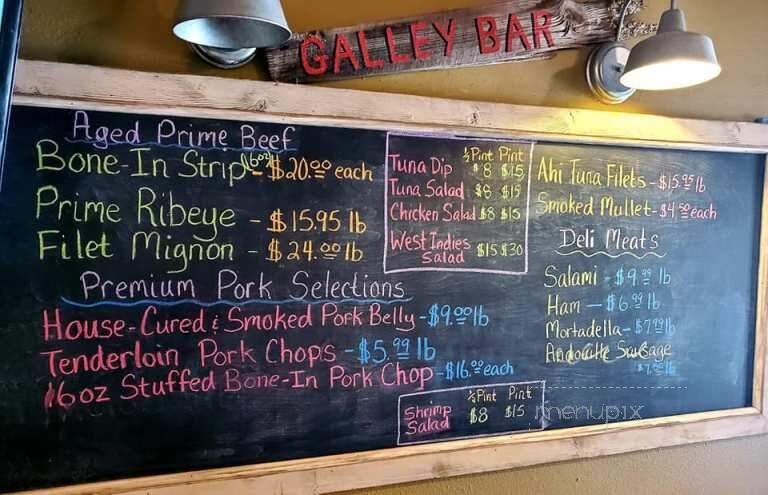 GALLEY BAR
Aged Prime Beef
Bone-In Strip 16oz - $20.00 each
Prime Ribeye - $15.95 lb
Filet Mignon - $24.00 lb
Premium Pork Selections
House-Cured & Smoked Pork Belly - $9.00 lb
Tenderloin Pork Chops - $5.99 lb
16oz Stuffed Bone-In Pork Chop - $16.00 each
½Pint Pint
Tuna Dip $8 $15
Tuna Salad $8 $15
Chicken Salad $8 $15
West Indies Salad $15 $30
½Pint Pint
Shrimp Salad $8 $15
Ahi Tuna Filets - $15.95 lb
Smoked Mullet - $4.50 each
Deli Meats
Salami - $9.99 lb
Ham - $6.99 lb
Mortadella - $7.99 lb
Andouille Sausage
menupix